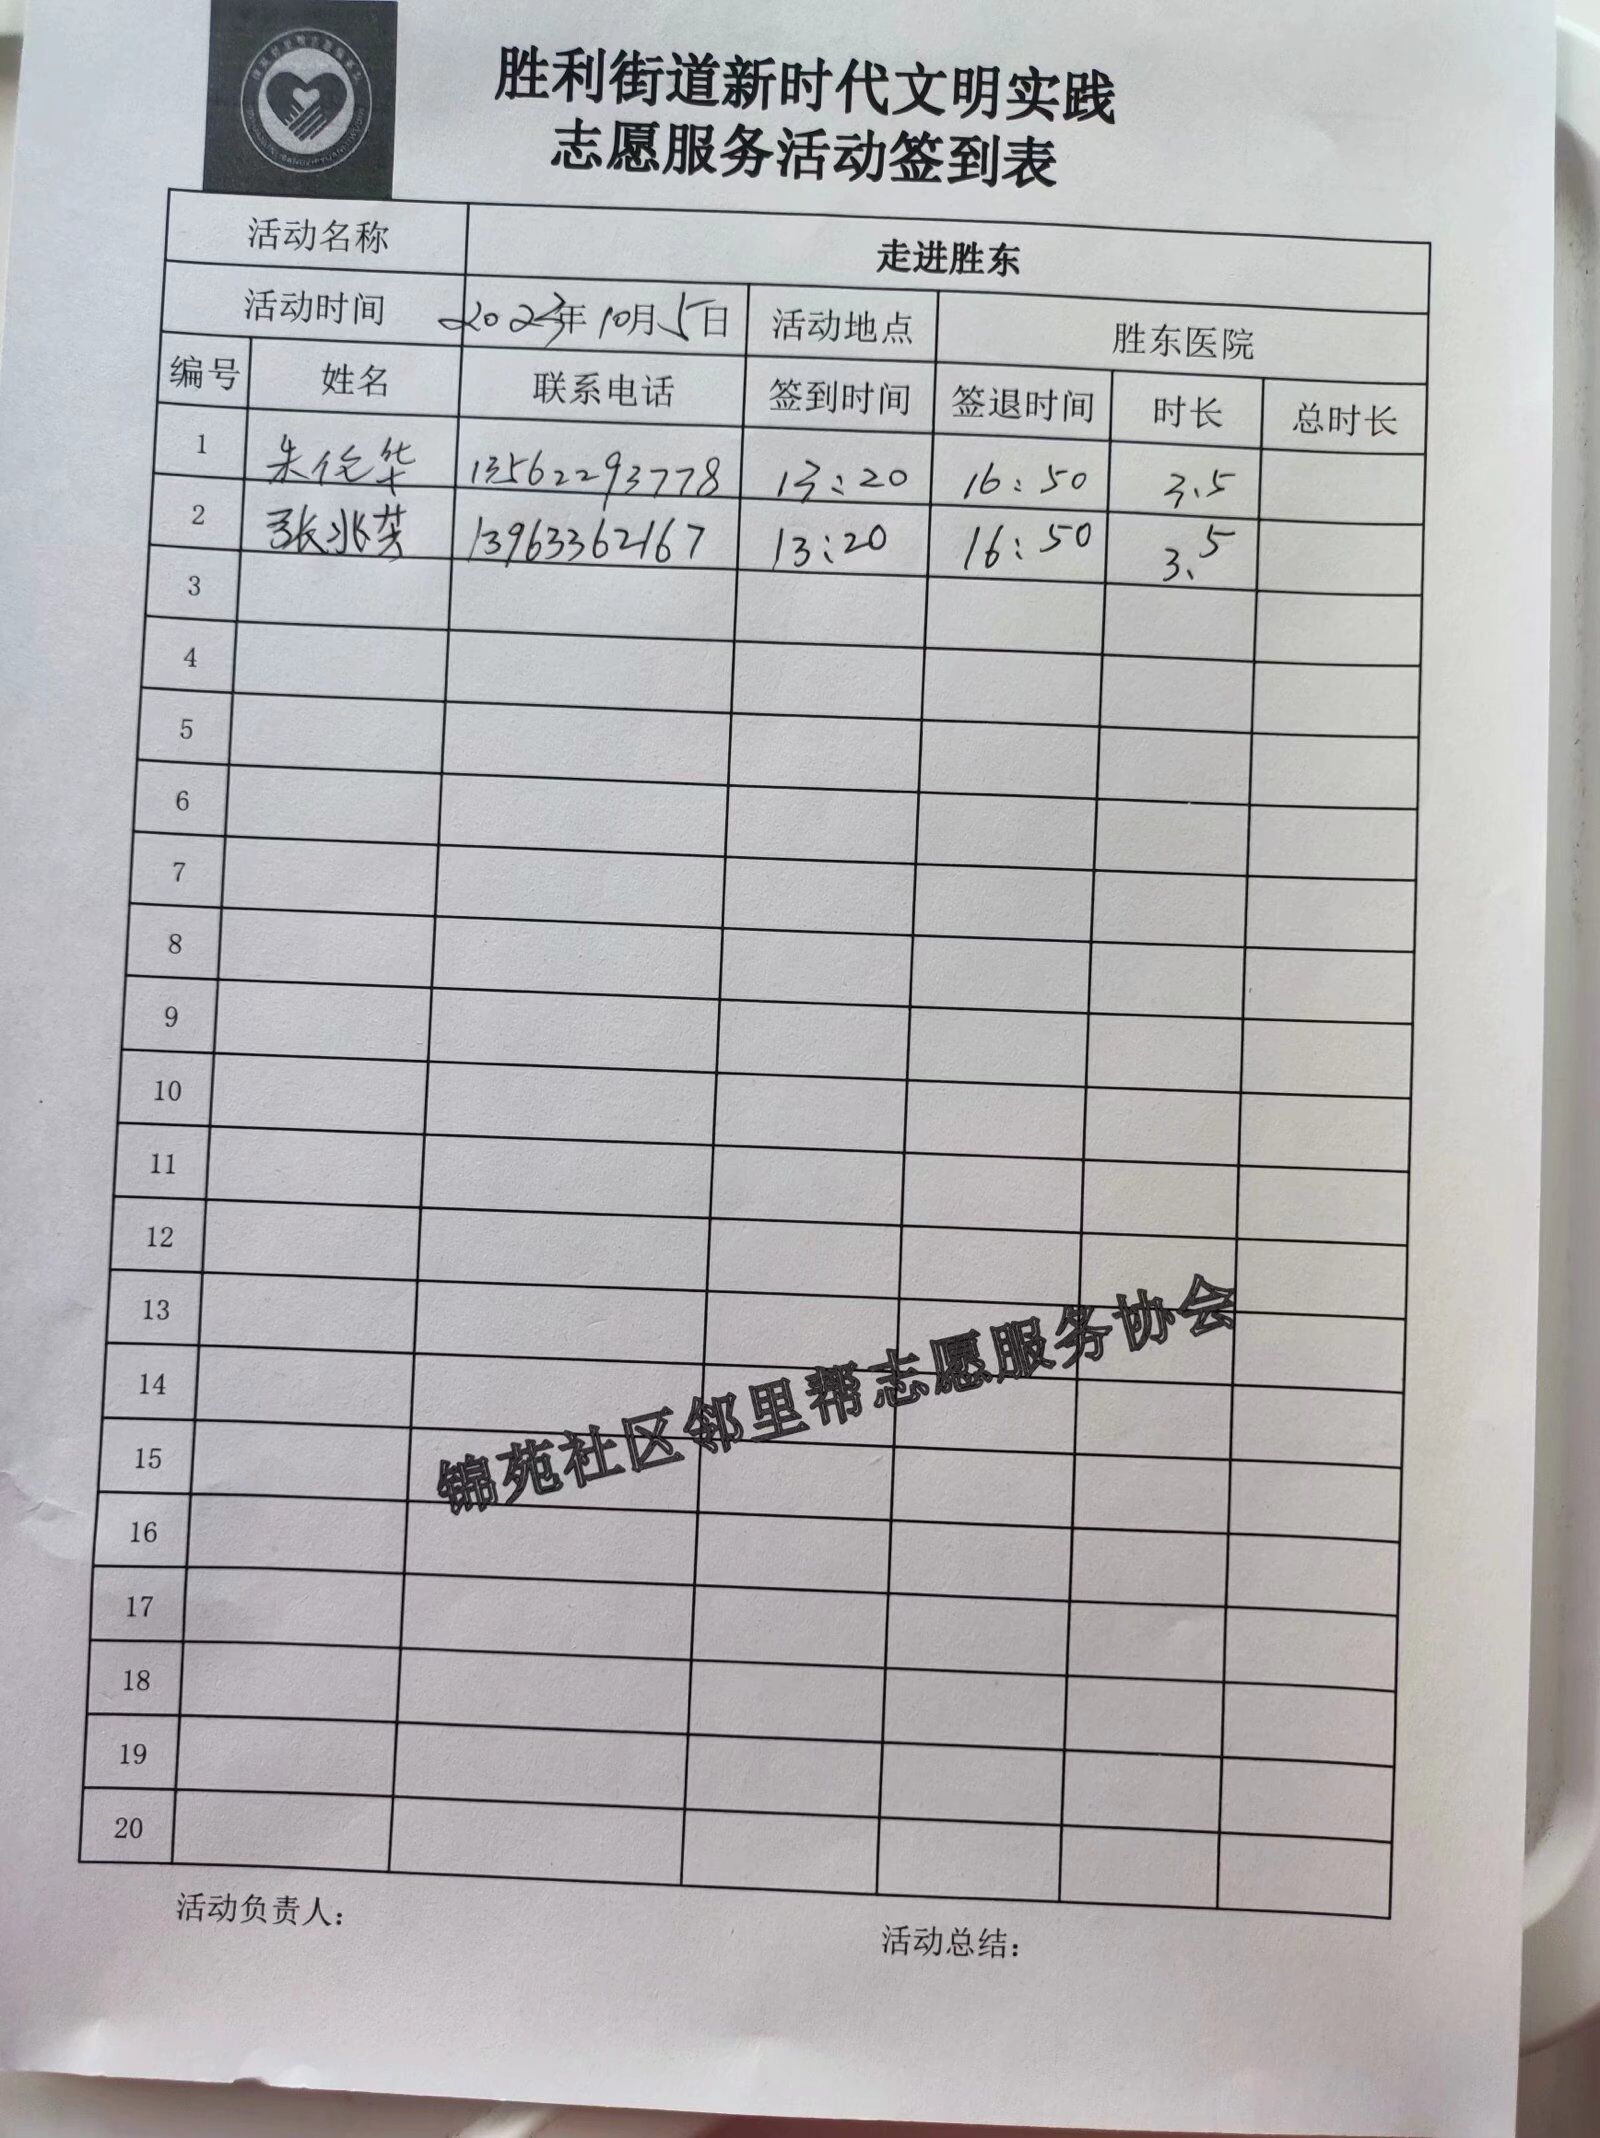 胜利街道新时代文明实践
志愿服务活动签到表
活动名称 走进胜东
活动时间 2023年10月5日 活动地点 胜东医院
编号 姓名 联系电话 签到时间 签退时间 时长 总时长
1 朱伦华 13562293778 13:20 16:50 3.5
2 张兆英 13963362167 13:20 16:50 3.5
3
4
5
6
7
8
9
10
11
12
13
14
15
16
17
18
19
20
锦苑社区邻里帮志愿服务协会
活动负责人：
活动总结：